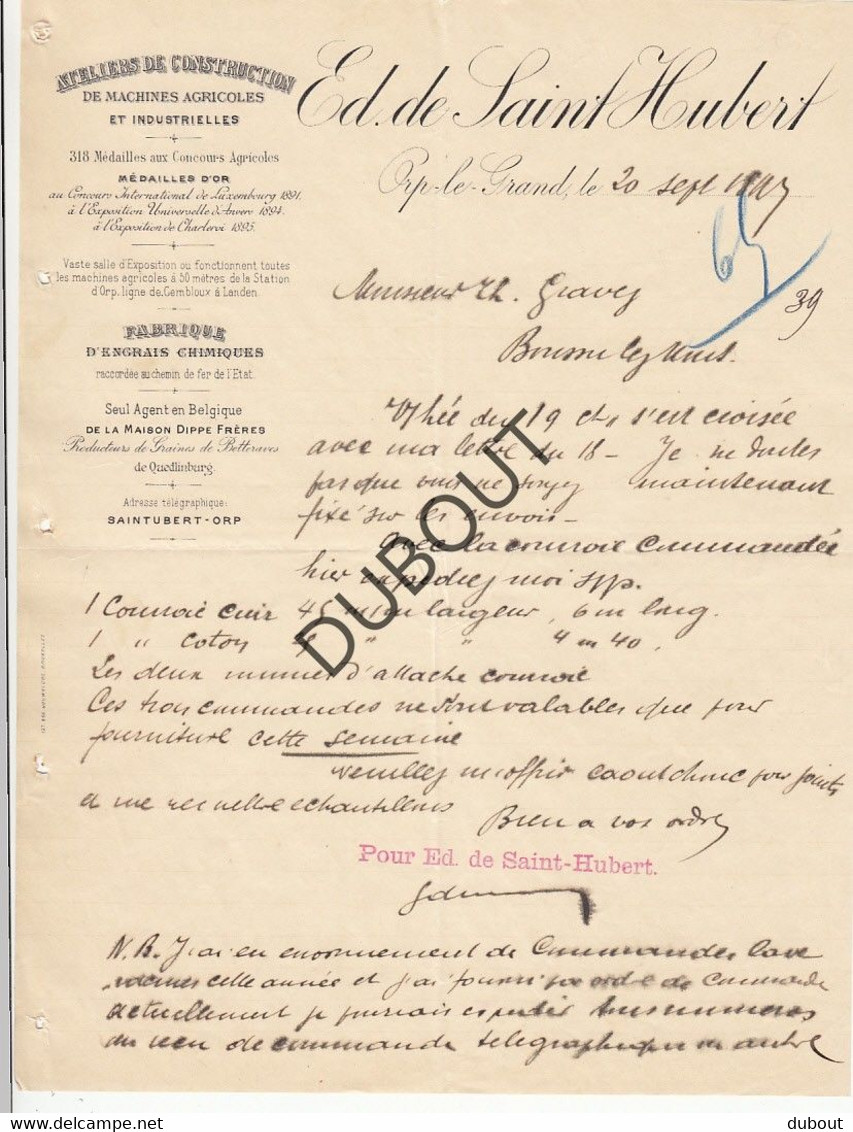 ATELIERS DE CONSTRUCTION
DE MACHINES AGRICOLES
ET INDUSTRIELLES
318 Médailles aux Concours Agricoles
MÉDAILLES D'OR
au Concours International de Luxembourg 1891,
à l'Exposition Universelle d'Anvers 1894.
à l'Exposition de Charleroi 1895.
Vaste salle d'Exposition ou fonctionnent toutes
les machines agricoles à 50 mètres de la Station
d'Orp. ligne de Gembloux à Landen.
FABRIQUE
D'ENGRAIS CHIMIQUES
raccordée au chemin de fer de l'Etat.
Seul Agent en Belgique
DE LA MAISON DIPPE FRÈRES
Producteurs de Graines de Betteraves
de Quedlinburg.
Adresse télégraphique:
SAINTUBERT-ORP
Ed. de Saint Hubert
Orp-le-Grand, le 20 sept
65
39
Monsieur Th. Gravez
du 19 ct, s'est croisée
avec ma lettre du 18 - Je ne doutes
pas que vous ne soyez maintenant
fixé sur les envois -
Avec la courroie commandée
hier expediez moi
1 Courroie cuir 45 m/m largeur, 6 m long.
1 " coton " " 4 m 40.
Les deux munies d'attache courroie
Ces trois commandes ne sont valables que pour
furniture cette semaine
veuillez m'offrir caoutchouc pour joints
et me remettre echantillons
Bien a vos ordres
Pour Ed. de Saint-Hubert.
N.B. J'ai eu enormement de Commandes
cette année et j'ai fourni par ordre de commande
actuellement je pourrais expedier tous numeros
au recu de commande telegraphique ou autre
DUBOUT
dubout